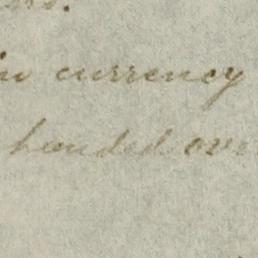 in currency
handed over